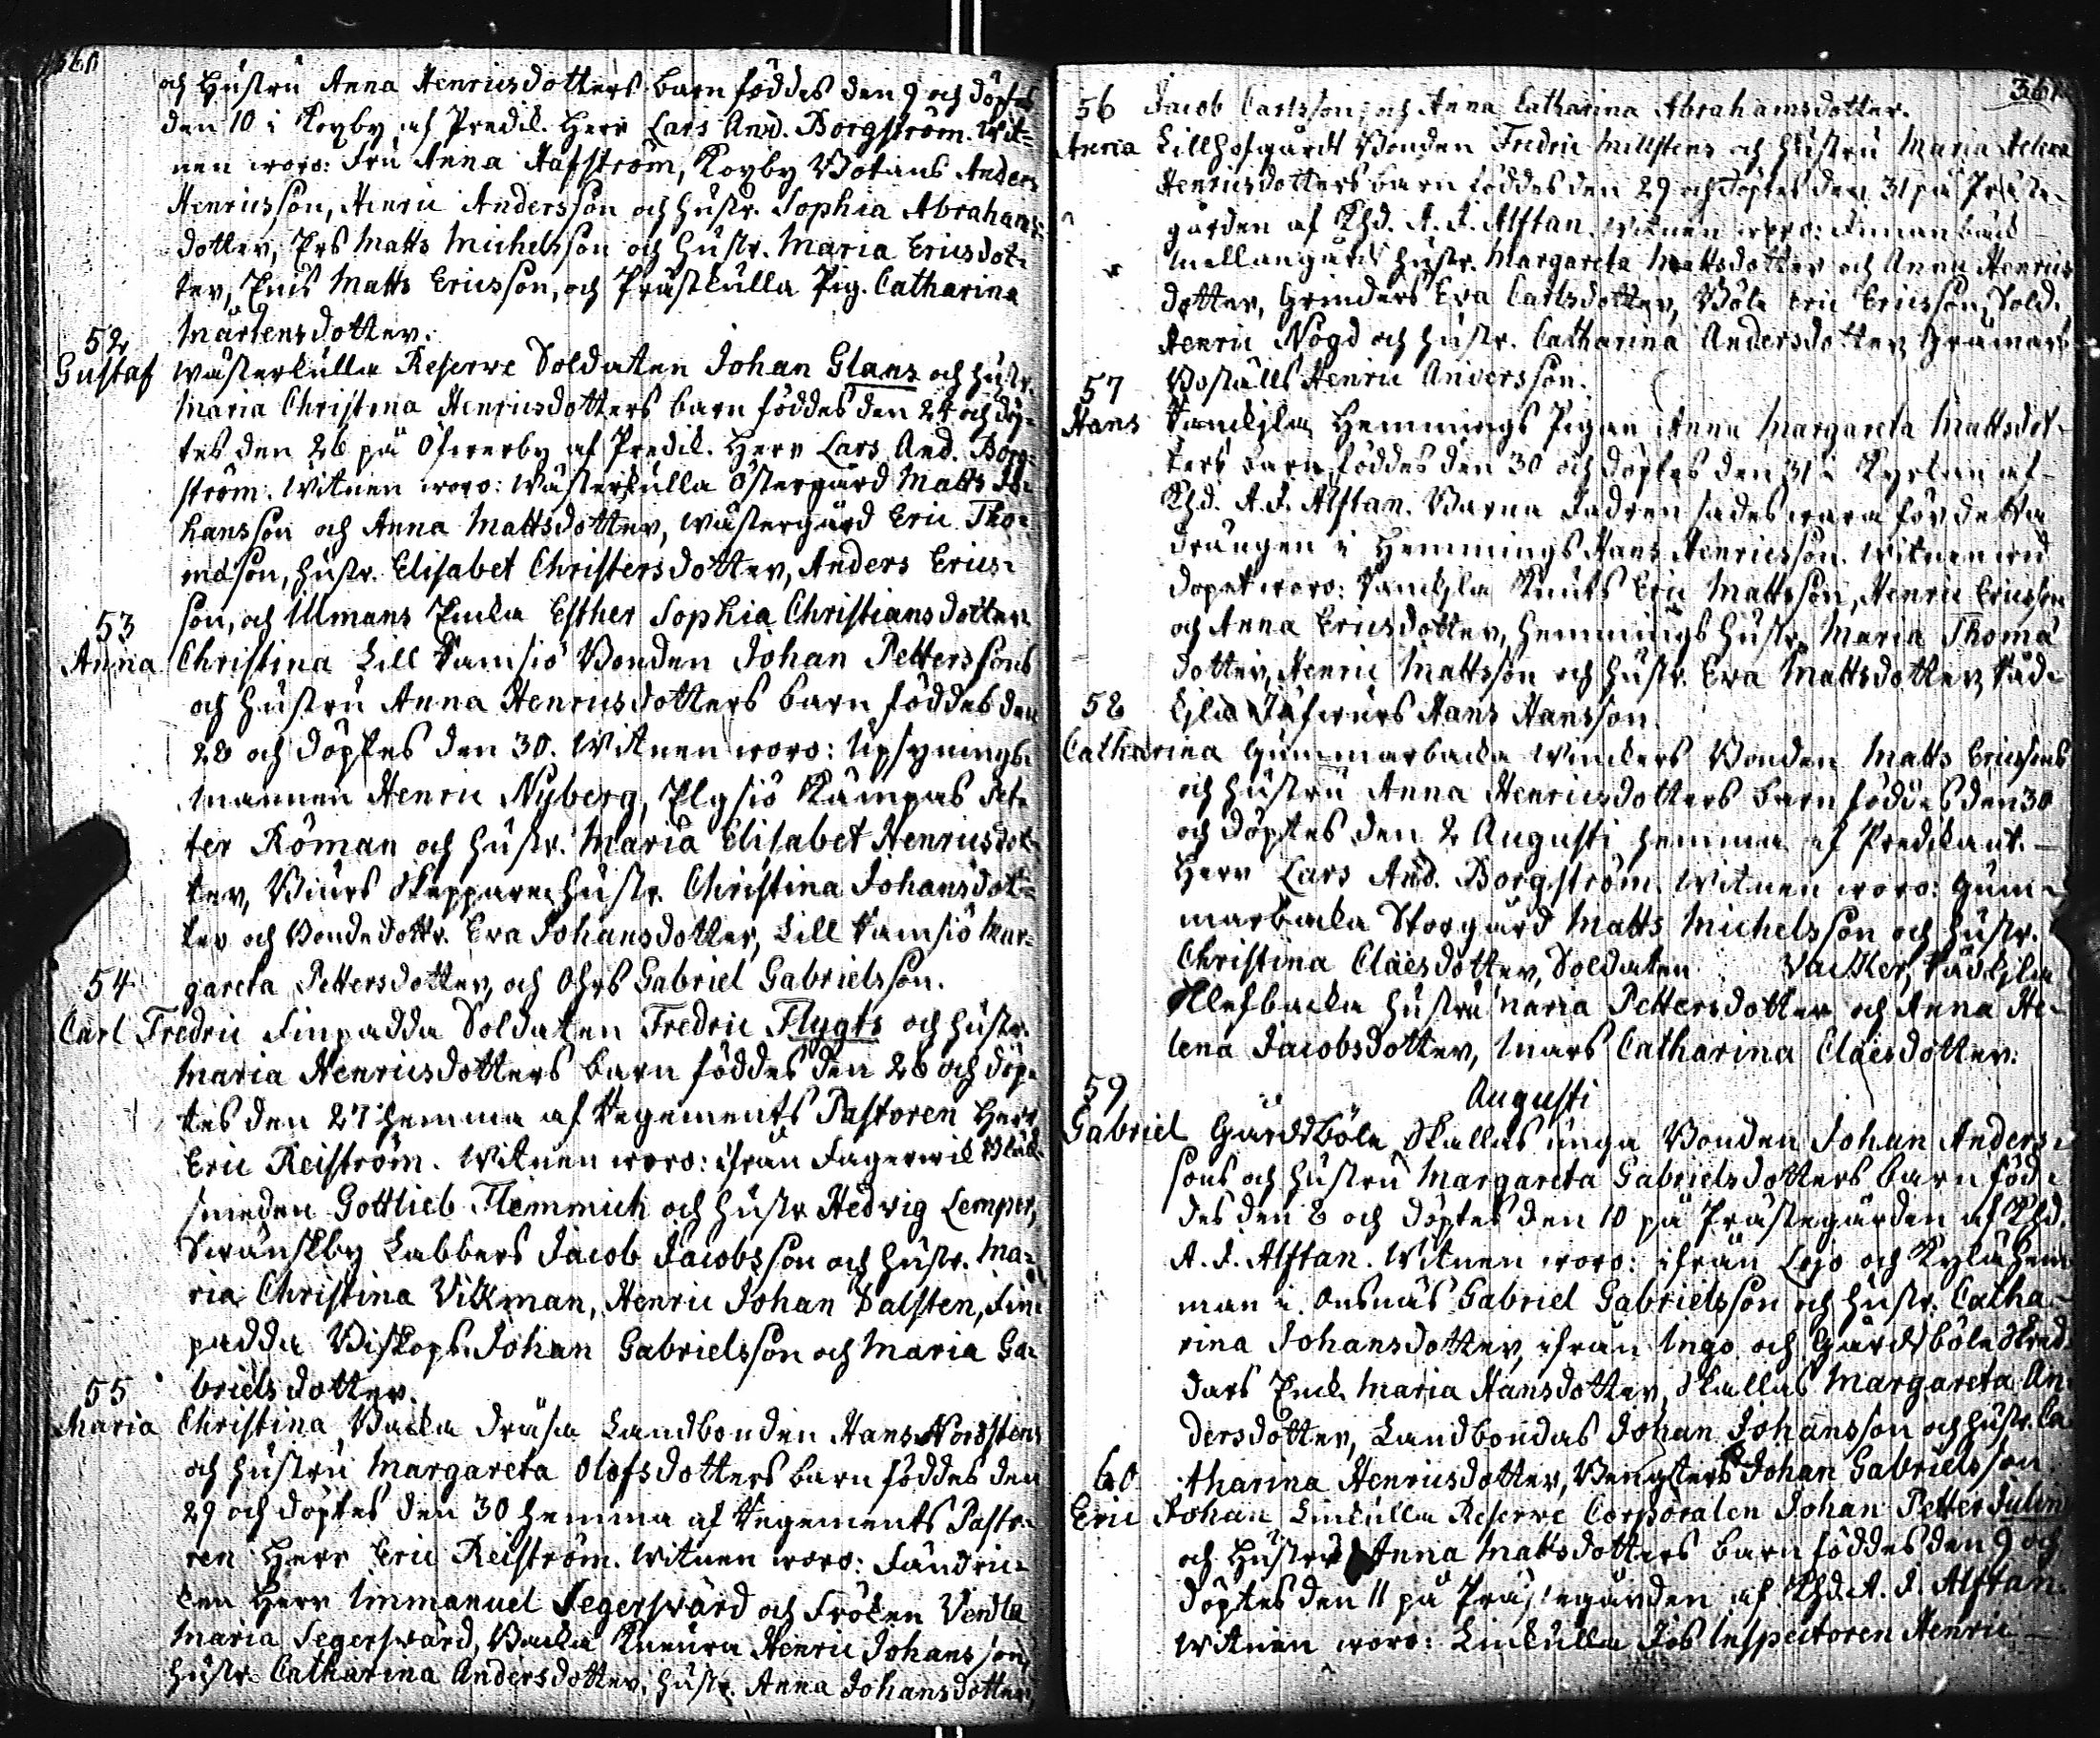 360
och Hustru Anna Henricsdotters barn föddes den 9 och döptes
den 10 i Koyby af Predik. Herr Lars And. Borgström. Wit-
nen woro: Fru Anna Hafström, Koyby Botans Anders
Henricsson, Henric Andersson och Hustr. Sophia Abrahams-
dotter, Ers Matts Michelsson och Hustr. Maria Ericsdot-
ter, Matts Ericsson, och Prästkulla Pig. Catharina
Mårtensdotter.
52
Gustaf Wästerkulla Reserve Soldaten Johan Glans och Hustr.
Maria Christina Henricsdotters barn föddes den 24 och döp-
tes den 26 på Öfwerby af Predik. Herr Lars And. Borg-
ström. Witnen woro: Wästerkulla Östergård Matts Jo-
hansson och Anna Mattsdotter, Wästergård Eric Tho-
masson, Hustr. Elisabet Christersdotter, Anders Erics-
son, och Ulmans Enka Esther Sophia Christiansdotter
53
Anna Christina Lill Ramsiö Bonden Johan Petterssons
och Hustru Anna Henricsdotters barn föddes den
28 och döptes den 30. Witnen woro: Upsynings-
mannen Henric Nyberg, Elgsiö Kämpas Pet-
ter Röman och Hustr. Maria Elisabet Henricsdot-
ter, Biurs Skepparen Hustr. Christina Johansdot-
ter och Bondedottr. Eva Johansdotter, Lill Ramsiö Mar-
gareta Pettersdotter, och Ohrs Gabriel Gabrielsson.
54
Carl Fredric Finpadda Soldaten Fredric Flygts och Hustr.
Maria Henricsdotters barn föddes den 26 och döp-
tes den 27 hemma af Regements Pastoren Herr
Eric Reiström. Witnen woro: ifrån Fagerwik
smeden Gottlieb Flemmich och Hustr. Hedvig Lemper,
Swänskby Labbers Jacob Jacobsson och Hustr. Ma-
ria Christina Vikman, Henric Johan Dalsten, Fin-
padda Biskops Johan Gabrielsson och Maria Ga-
brielsdotter.
55
Maria Christina Backa Dräsa Landbonden Hans Nordstens
och Hustru Margareta Olofsdotters barn föddes den
29 och döptes den 30 hemma af Regements Pasto-
ren Herr Eric Reiström. Witnen woro: Fändric-
ken Herr Immanuel Segerswärd och Fröken Vendla
Maria Segerswärd, Backa Kneura Henric Johansson,
Hustr. Catharina Andersdotter, Hustr. Anna Johansdotter
361
56 Jacob Carlsson, och Anna Catharina Abrahamsdotter.
Anna Lillhofgårdt Bonden Fredric Millstens och Hustru Maria Helena
Henricsdotters barn föddes den 29 och döptes den 31 på Präste-
gården af Khd. A. J. Alftan. Witnen woro: Finnanback
Mellangårds Hustr. Margareta Mattsdotter och Anna Henrics
dotter, Grinders Eva Carlsdotter, Böle Eric Ericsson, Sold.
Henric Nögd och Hustr. Catharina Andersdotter, Gränars
57 Boställs Henric Andersson.
Hans Hemmings Pigan Anna Margareta Mattsdot-
ters barn föddes den 30 och döptes den 31 i Kyrkan af
Khd. A. J. Alftan. Barna Fadren sades wara för detta
drängen i Hemmings Hans Henricsson. Witnen wid
dopet woro: Knuts Eric Mattsson, Henric Ericsson
och Anna Ericsdotter, Hemmings Hustr. Maria Thomä
dotter, Henric Mattsson och Hustr. Eva Mattsdotter, Räd-
58 kila Hans Hansson.
Catharina Gummarbacka Winckers Bonden Matts Ericssons
och Hustru Anna Henricsdotters barn föddes den 30
och döptes den 2 Augusti hemma af Predikant.
Herr Lars And. Borgström. Witnen woro: Gum-
marbacka Storgård Matts Michelsson och Hustr.
Christina Claesdotter, Soldaten Vacker, Rädkila
Klefbacka Hustru Maria Pettersdotter och Anna He-
lena Jacobsdotter, Mars Catharina Claesdotter.
59 Augusti
Gabriel Gårdsböle Skallas unga Bonden Johan Anders-
sons och Hustru Margareta Gabrielsdotters barn föd-
des den 8 och döptes den 10 på Prästegården af Khd.
A. J. Alftan. Witnen woro: ifrån Lojo och Kylä Hem
man i Onsnäs Gabriel Gabrielsson och Hustr. Catha-
rina Johansdotter, ifrån Ingo och Gårdsböle Skräd-
dars Enk. Maria Hansdotter, Skallas Margareta An-
dersdotter, Landbondas Johan Johansson och Hustr. Ca
60 tharina Henricsdotter, Bengters Johan Gabrielsson.
Eric Johan Linkulla Reserve Corporalen Johan Petter Julin
och Hustru Anna Mattsdotters barn föddes den 9 och
döptes den 11 på Prästegården af Khd. A. J. Alftan.
Witnen woro: Linkulla Jos Inspectoren Henric